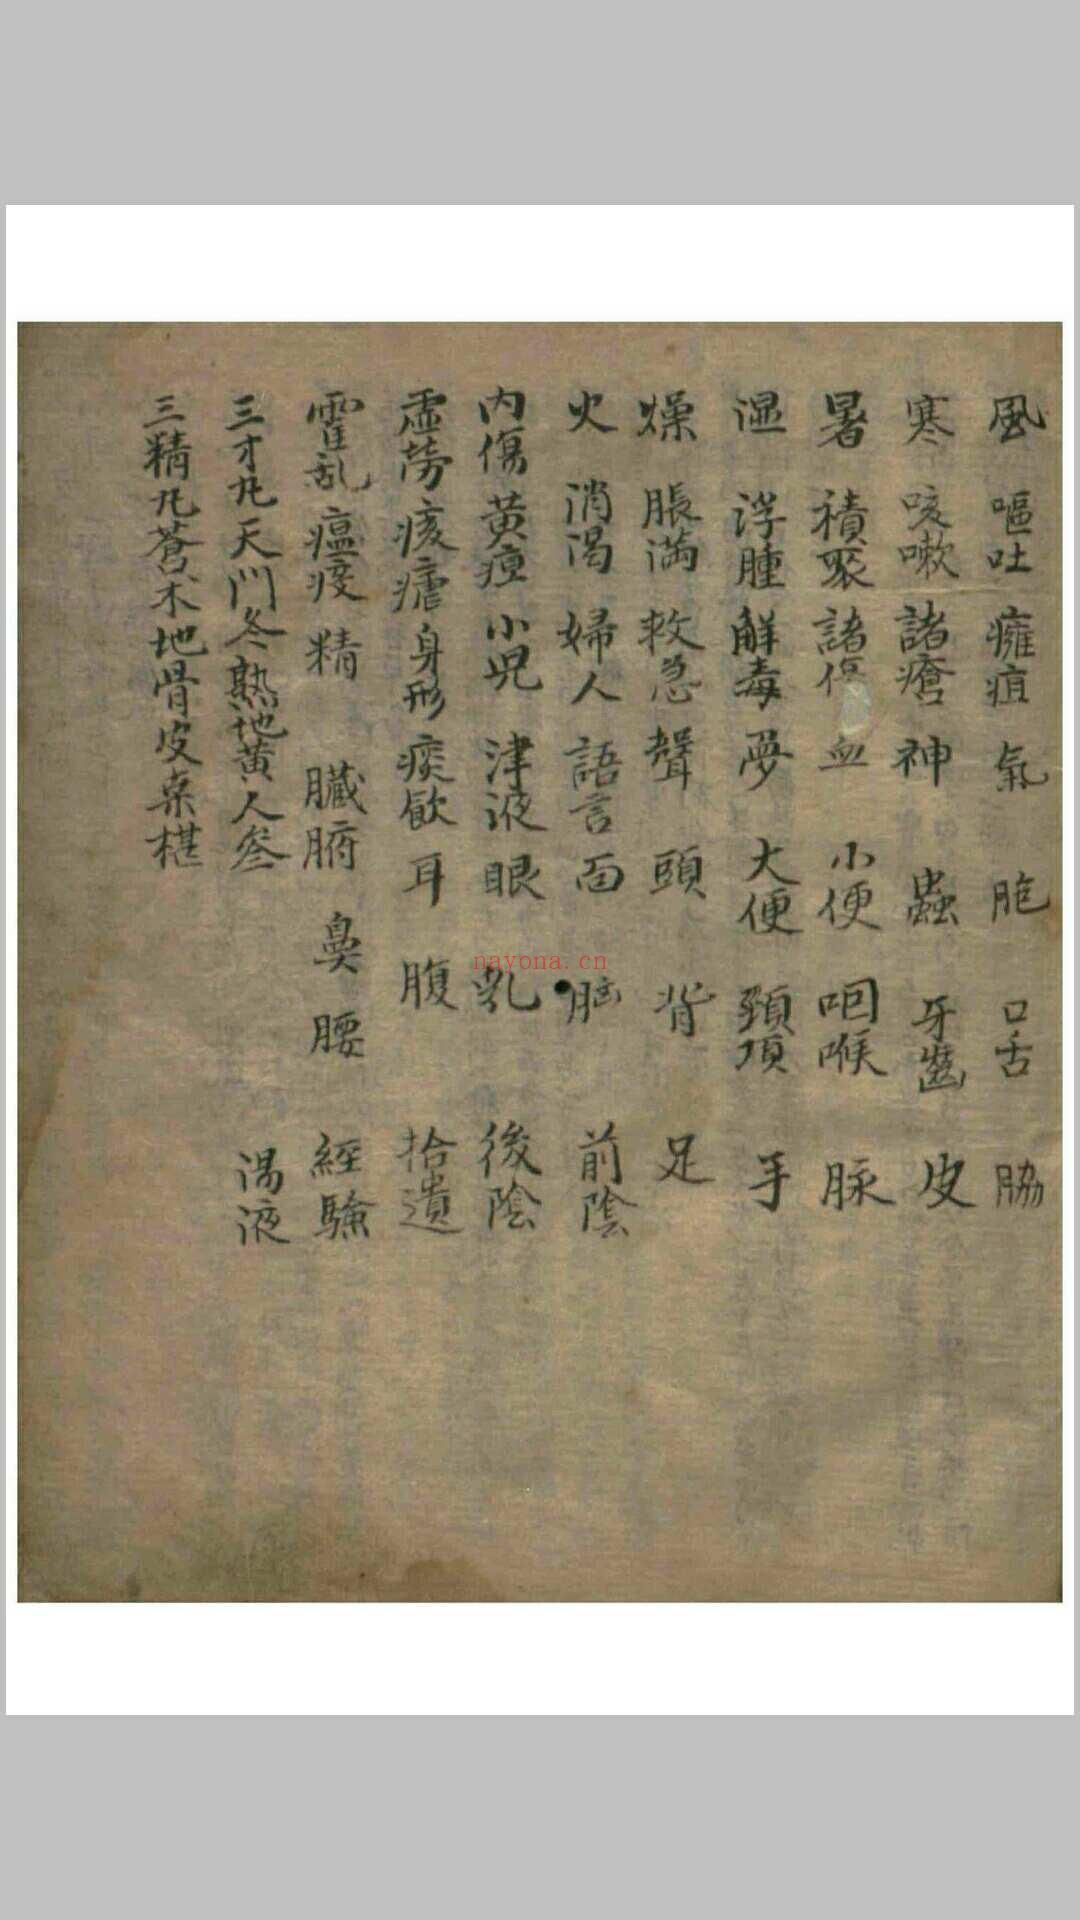 風 嘔吐 癰疽 氣 胞 口舌 脇
寒 咳嗽 諸瘡 神 蟲 牙齒 皮
暑 積聚 諸傷 血 小便 咽喉 脉
湿 浮腫 解毒 夢 大便 頸項 手
燥 脹滿 救急 聲 頭 背 足
火 消渴 婦人 語言 面 胸 前陰
內傷 黃疸 小児 津液 眼 乳 後陰
虛勞 痎瘧 身形 痰飲 耳 腹 拾遺
霍乱 瘟疫 精 臟腑 鼻 腰 經驗
三才丸 天門冬 熟地黃 人參 湯液
三精丸 蒼朮 地骨皮 桒椹
nayona.cn